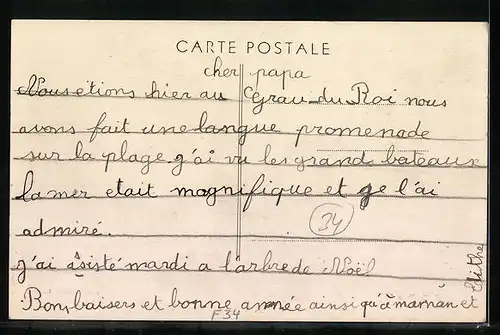 CARTE POSTALE
cher papa
Nous etions hier au Grau du Roi nous
avons fait une langue promenade
sur la plage j'ai vu les grand bateaux
la mer etait magnifique et je l'ai
admiré.
34
j'ai àsisté mardi a l'arbre de Noël
Bons baisers et bonne année ainsi qu'à maman et
F34